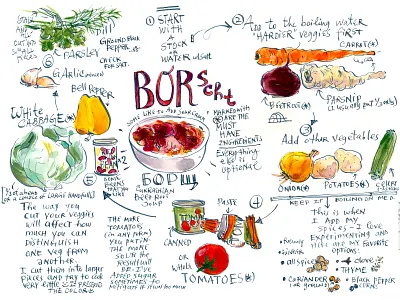 BORSCHT
БОРЩ
UKRAINIAN
BEETROOT
SOUP
① START
WITH
A
STOCK
OR
WATER
② Add to the boiling water
"HARDIER" veggies first
CARROT
BEETROOT
PARSNIP
③
Add other vegetables
ONION
POTATOES
CELERY
KEEP IT BOILING ON MED
④
This is when
I ADD MY
SPICES - I LOVE
EXPERIMENTING AND
HERE ARE MY FAVORITE
OPTIONS:
CLOVE
THYME
CORIANDER
BLACK PEPPER
CORNS
PASTE
CANNED
OR
WHOLE
TOMATOES
THE MORE
TOMATOES
(in ANY FORM)
YOU PUT IN-
THE MORE
SOUR THE
RESULT WILL
BE. I'VE
ADDED SUGAR
SOMETIMES TO
⑤
White
CABBAGE
Bell Pepper
RED
BEAN
×2
The way you
cut your veggies
will affect how
much you can
distinguish
one veg from
another.
I cut them into larger
pieces and try to cook
very little to preserve
the colors
⑥
Dill
PARSLEY
GARLIC
GROUND BLACK
PEPPER
CHECK
FOR SALT.
CUT INTO
SMALL
PIECES
SOME LIKE TO ADD SOUR CREAM
MARKED WITH
ARE THE
MUST
HAVE
INGREDIENTS
EVERYTHING
ELSE IS
OPTIONAL